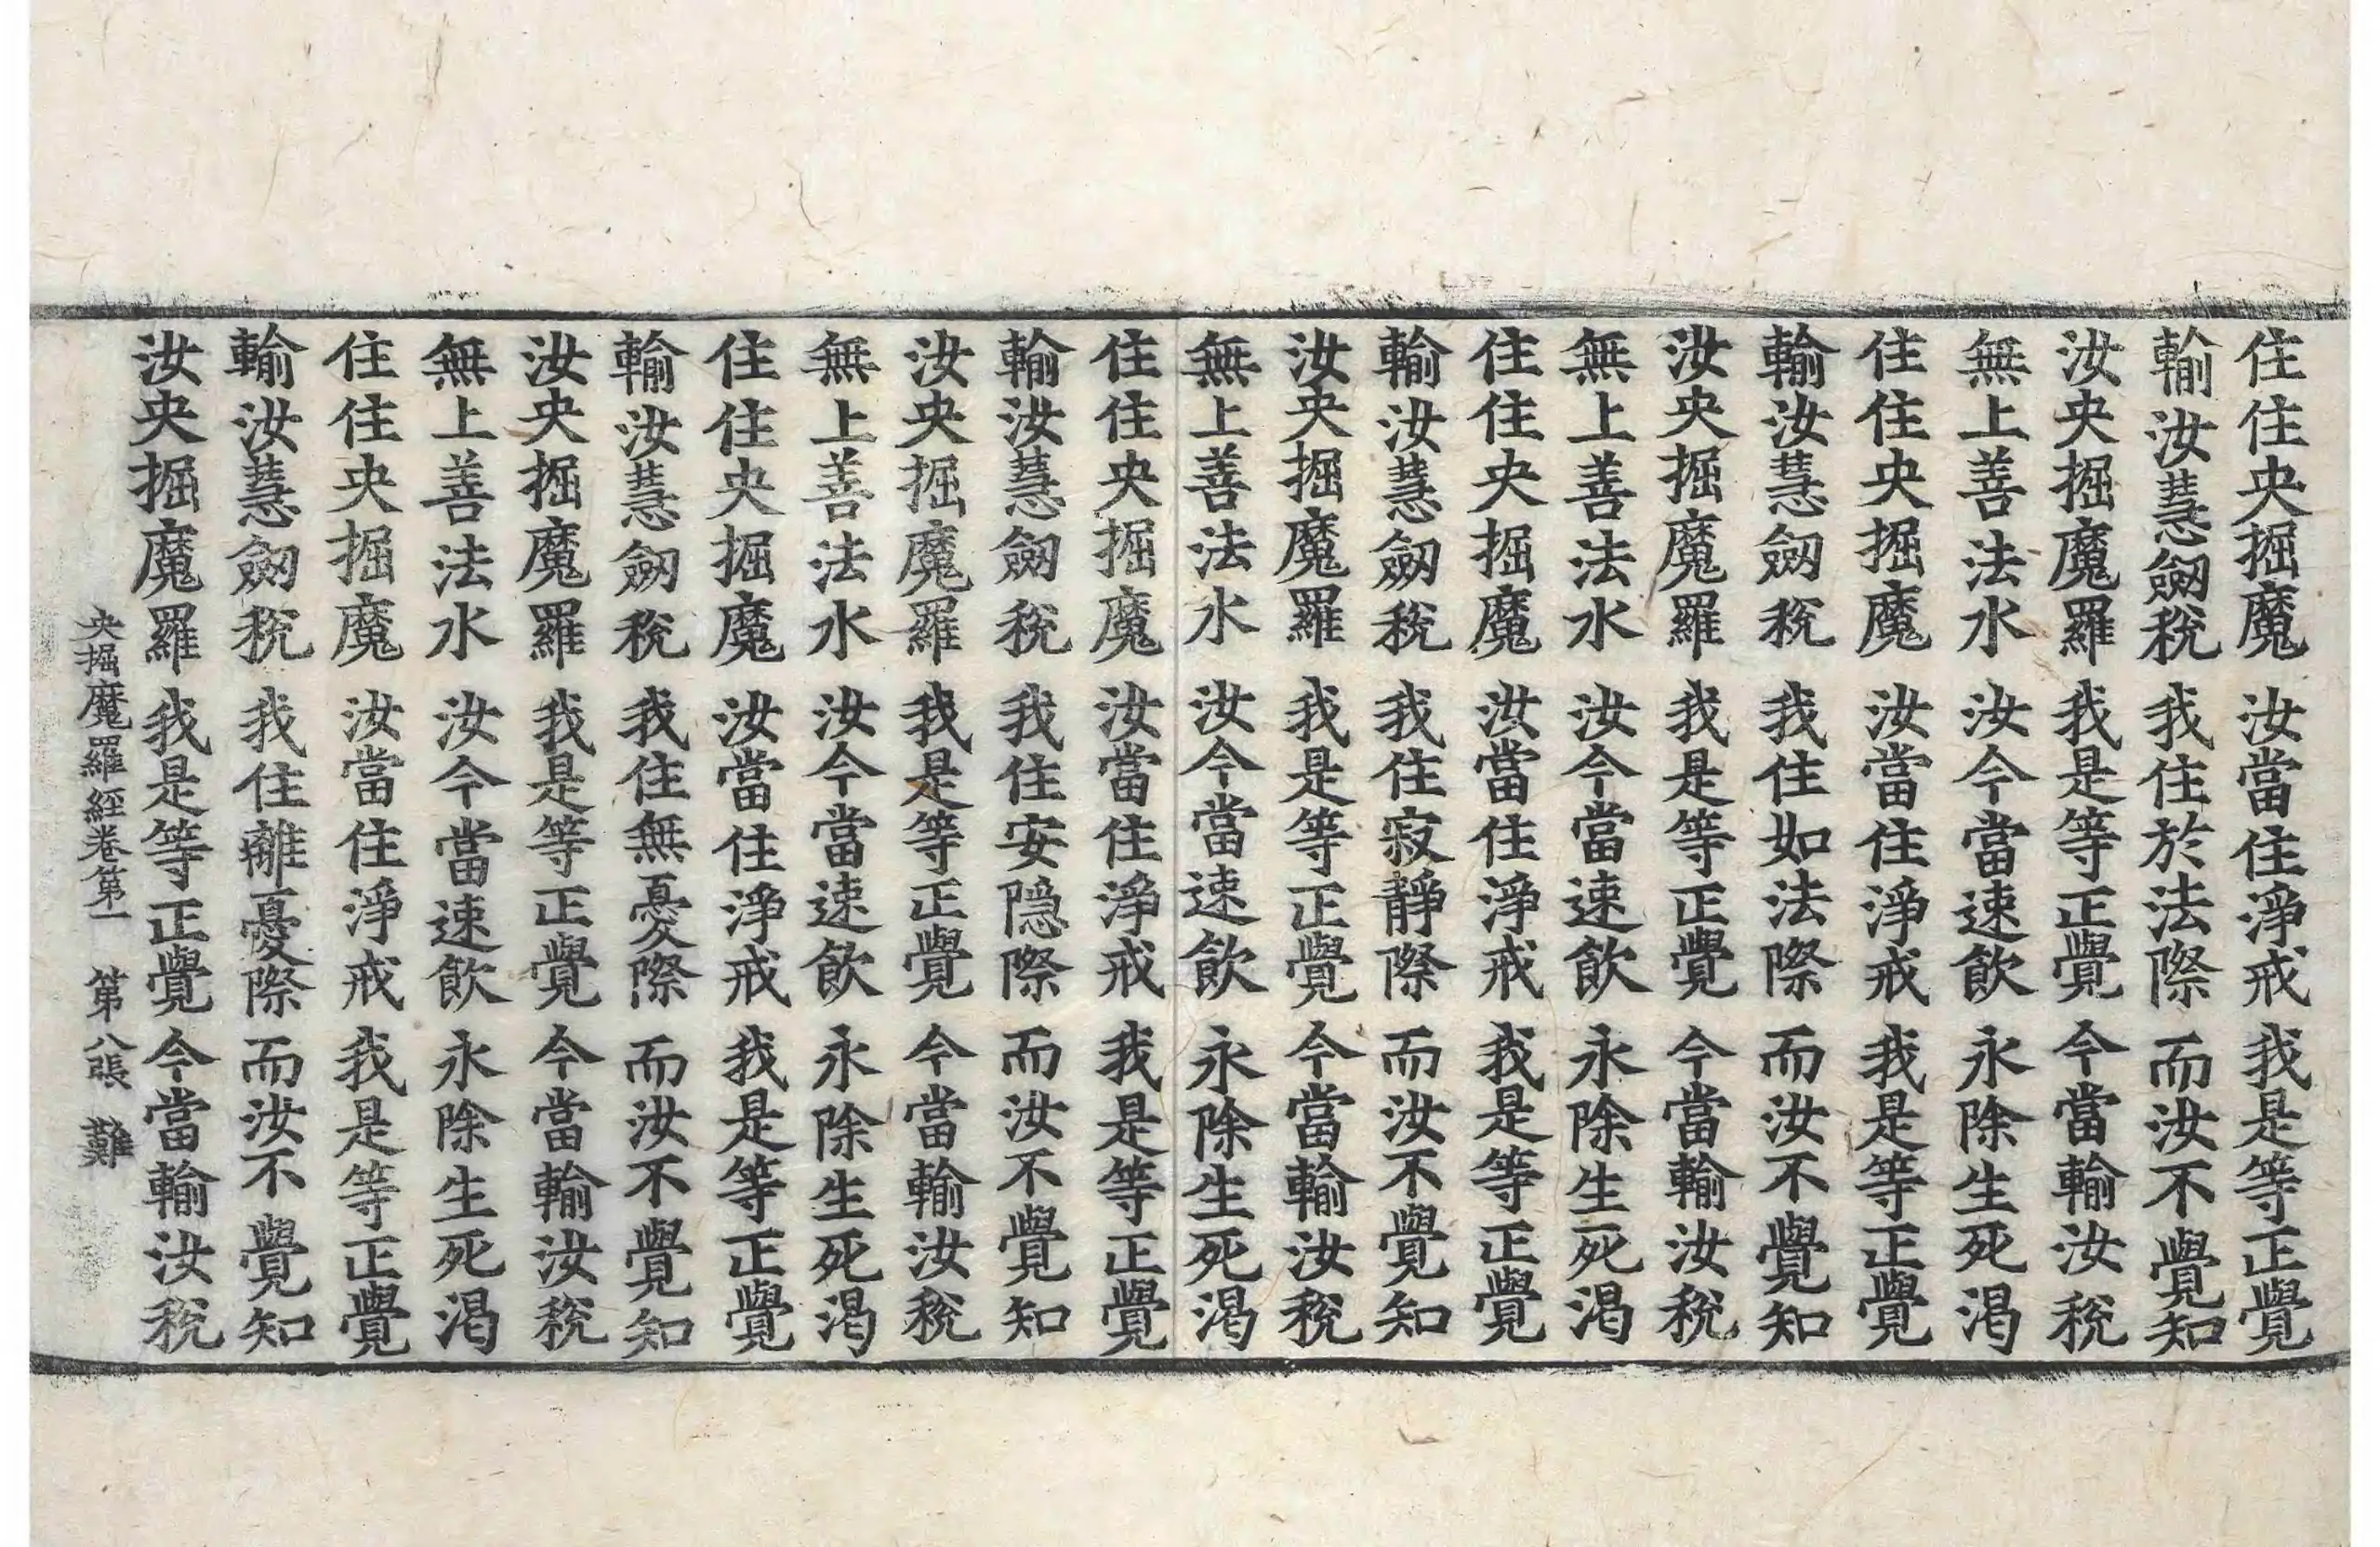 住住央掘魔 汝當住淨戒 我是等正覺
輸汝慧劒稅 我住於法際 而汝不覺知
汝央掘魔羅 我是等正覺 今當輸汝稅
無上善法水 汝今當速飮 永除生死渴
住住央掘魔 汝當住淨戒 我是等正覺
輸汝慧劒稅 我住如法際 而汝不覺知
汝央掘魔羅 我是等正覺 今當輸汝稅
無上善法水 汝今當速飮 永除生死渴
住住央掘魔 汝當住淨戒 我是等正覺
輸汝慧劒稅 我住寂靜際 而汝不覺知
汝央掘魔羅 我是等正覺 今當輸汝稅
無上善法水 汝今當速飮 永除生死渴
住住央掘魔 汝當住淨戒 我是等正覺
輸汝慧劒稅 我住安隠際 而汝不覺知
汝央掘魔羅 我是等正覺 今當輸汝稅
無上善法水 汝今當速飮 永除生死渴
住住央掘魔 汝當住淨戒 我是等正覺
輸汝慧劒稅 我住無憂際 而汝不覺知
汝央掘魔羅 我是等正覺 今當輸汝稅
無上善法水 汝今當速飮 永除生死渴
住住央掘魔 汝當住淨戒 我是等正覺
輸汝慧劒稅 我住離憂際 而汝不覺知
汝央掘魔羅 我是等正覺 今當輸汝稅
央掘魔羅經卷第一 第八張 難